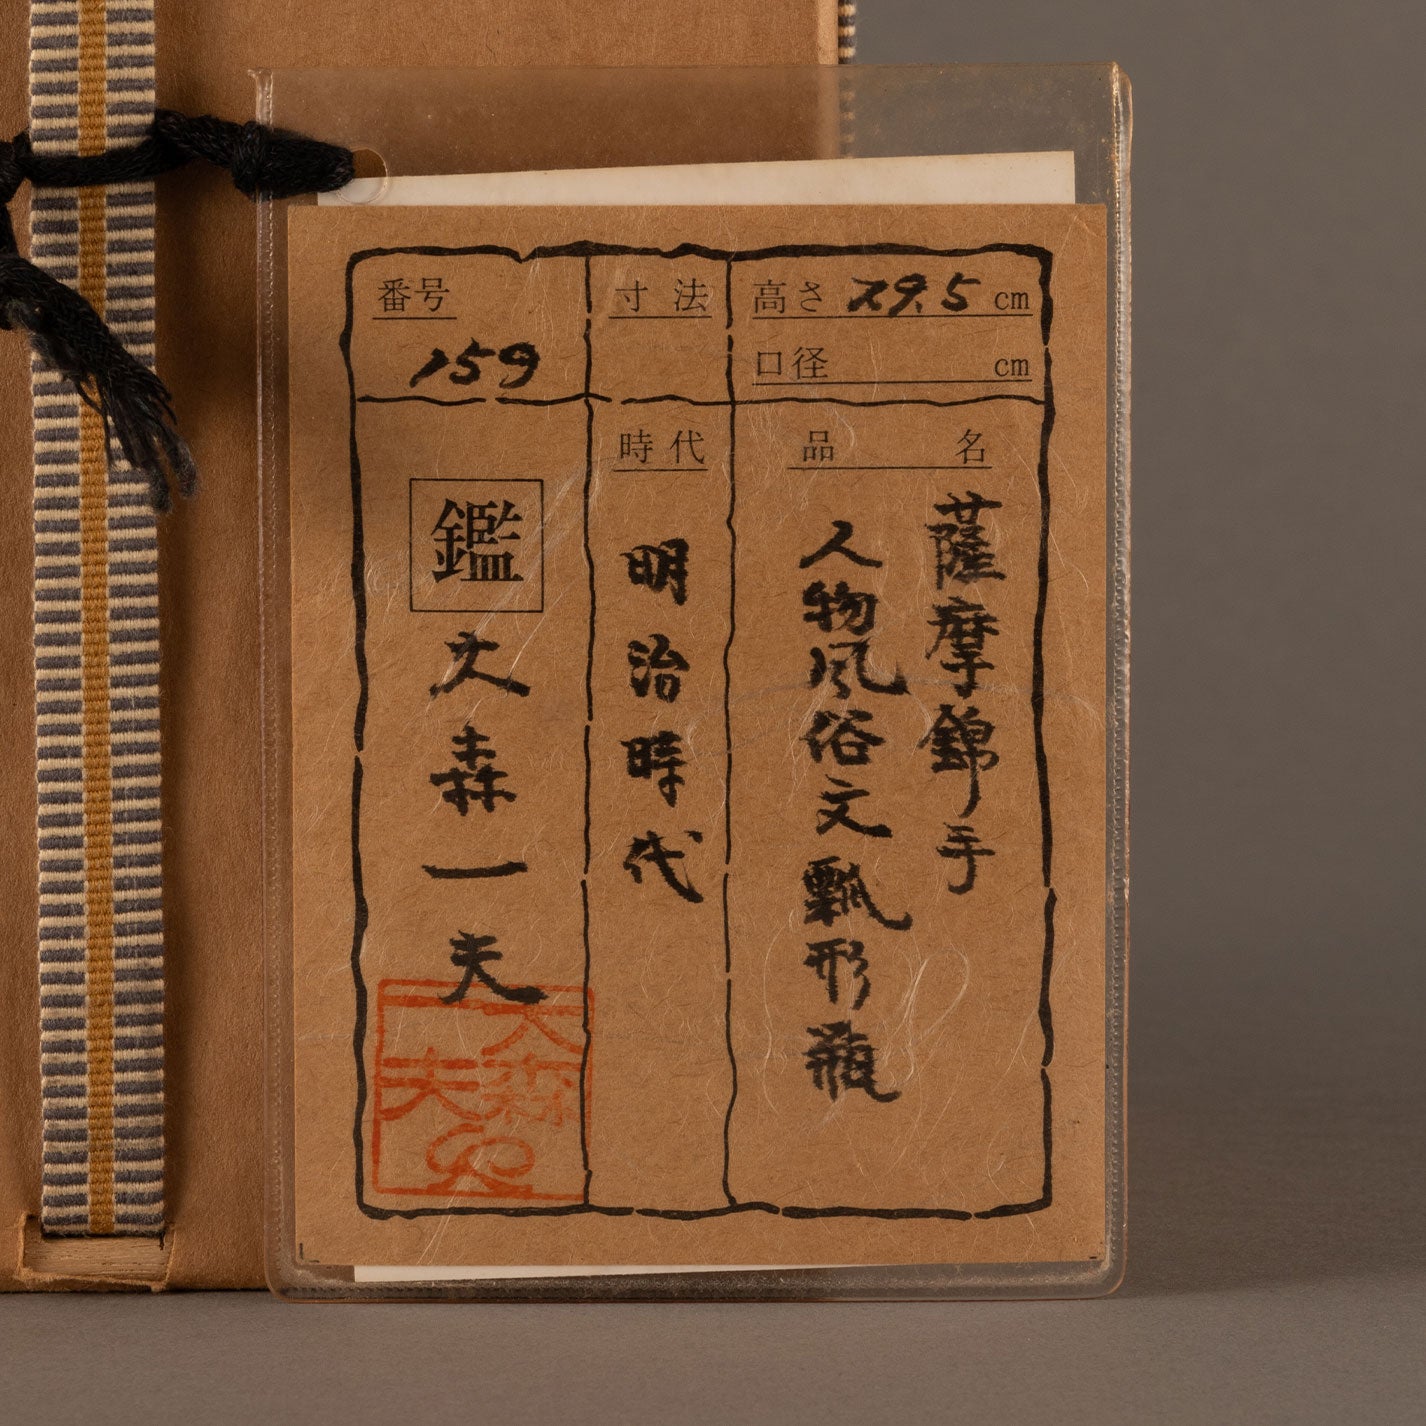 番号
159
寸法
高さ 29.5 cm
口径 cm
品名
薩摩錦手
人物風俗文瓢形瓶
時代
明治時代
鑑
大森一夫
大森
一夫